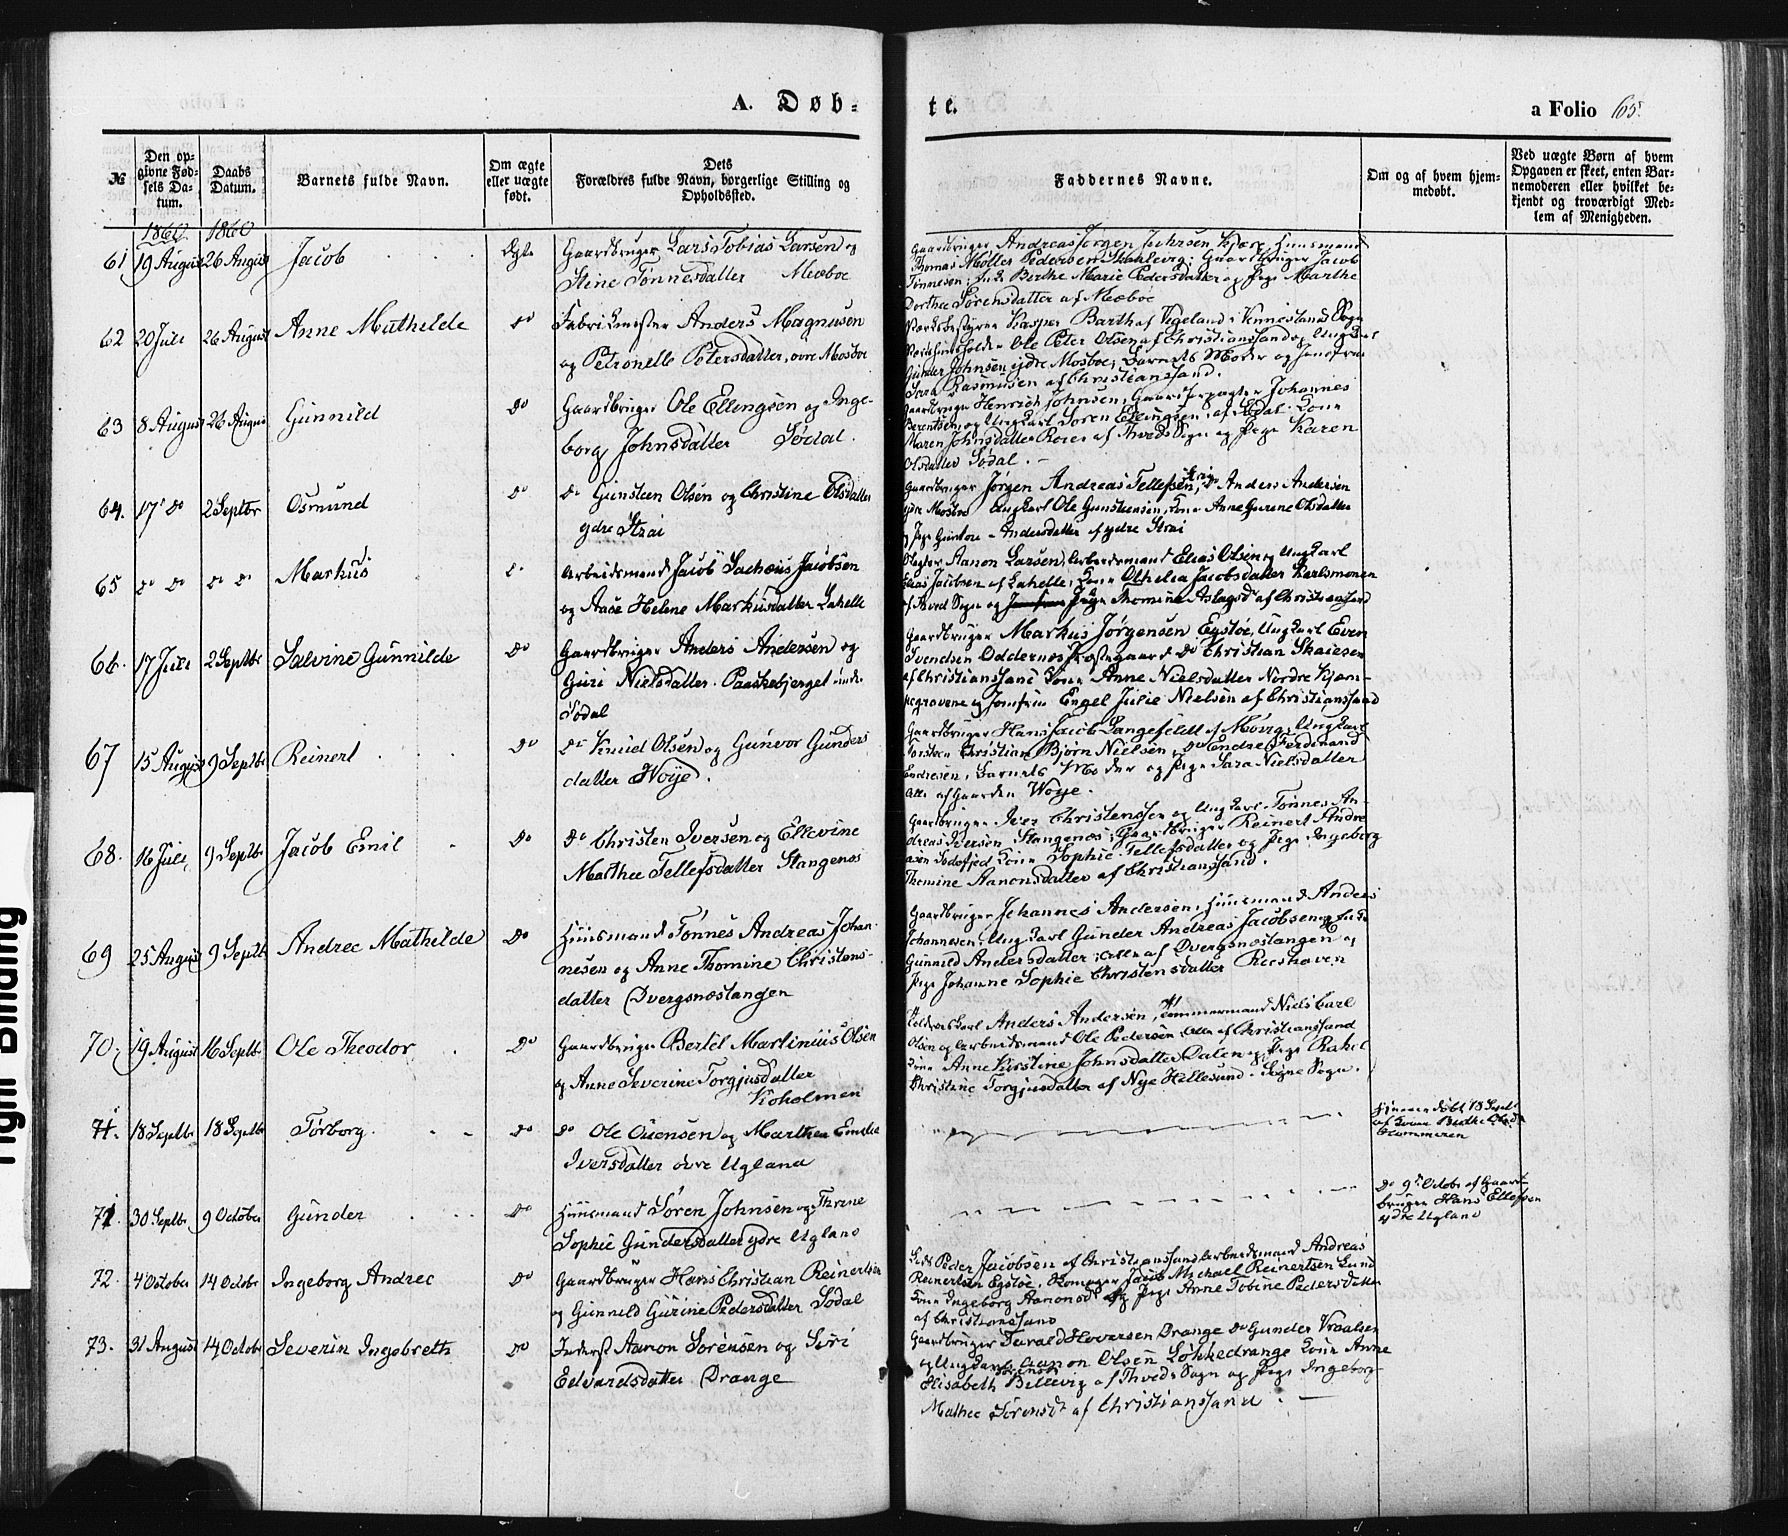 A. Døb-
te.
a Folio 65.
№
Den op-
givne Fød-
sels Da-
tum.
Daabs
Datum.
Barnets fulde Navn.
Om ægte
eller uægte
født.
Dets
Forældres fulde Navn, borgerlige Stilling og
Opholdssted.
Faddernes Navne.
Om og af hvem hjem-
medøbt.
Ved uægte Børn af hvem
Opgaven er skeet, enten Bar-
nemoderen eller hvilket be-
kjendt og troværdigt Med-
lem af Menigheden.
1860 1860
61 19 August 26 August Jacob Ægte
Gaardbruger Lars Tobias Larsen og
Stine Tønnesdatter Mæboe
Gaardbruger Andreas Jørgen Johnsen Kjære, Huusmand
Thomas Møller Pedersen; Gaardbruger Jacob
Tønnesen; Birthe Marie Pedersdatter og Pige Marthe
Dorthea Sørensdatter af Mæboe
62 20 Juli 26 August Anne Mathilde Do
Fabrikmester Anders Magnusen
og Petronelle Petersdatter, øvre Mosboe
Værksbestyrer Kasper Barth af Vigeland i Vennesland Sogn
Ole Peter Olsen af Christianssand og Ungkarl
Gunder Johnsen ydre Mosboe; Barnets Moder og Jomfrue
Sara Rasmusen af Christianssand.
63 8 August 26 August Gunnild Do
Gaardbruger Ole Ellengsen og Inge-
borg Johnsdatter Sødal.
Gaardbruger Henrich Johnsen, Gaardforpagter Johannes
Berentsen og Ungkarl Søren Ellingsen, af Sødal. Kone
Maren Johnsdatter Roser af Tveds Sogn og Pige Karen
Olsdatter Sødal. —
64. 17 Do 2 Septbr Osmund Do
Do Gunsteen Olsen og Christine Olsdatter
ydre Strai
Gaardbruger Jørgen Andreas Tellefsen Strai, Do Anders Andersen
ydre Mosboe Ungkarl Ole Gunstensen, Kone Anne Gurene Olsdatter
og Pige Gunvor Andersdatter af ydre Strai
65 Do Do Do Do Markus Do
Arbeidsmand Jacob Sachæus Jacobsen
og Aase Helene Markusdatter Lahelle
Slagter Aanon Larsen, Arbeidsmand Elias Olsen og Ungkarl
Elias Jacobsen af Lahelle; Kone Othelia Jacobsdatter Karlsmonen
af Tved Sogn og Jomfrue Pige Thomine Aslagsdr af Christianssand
66. 17 Juli 2 Septbr Salvine Gunnilde Do
Gaardbruger Anders Andersen og
Guri Nielsdatter. Paaskebjerget under
Sødal
Gaardbruger Markus Jørgensen Egstøe, Ungkarl Even
Svendsen Oddernes Præstegaard Do Christian Skaiesen
af Christianssand Kone Anne Nielsdatter Nordre Kjøn-
negravene og Jomfrue Engel Julie Nielsen af Christianssand
67 15 August 9 Septbr Reinert Do
Do Knud Olsen og Gunvor Gunders
datter Woye.
Gaardbruger Hans Jacob Langefeldt af Møvig, Ungkarl
Christian Bjørn Nielsen, Do Endre Ferdinand
Endresen, Barnets Moder og Pige Sara Nielsdatter
Alle af Gaarden Woye.
68. 16 Juli 9 Septbr Jacob Emil Do
Do Christen Iversen og Ellevine
Marthea Tellefsdatter Stangenes
Gaardbruger Iver Christensen og Ungkarl Tønnes An-
dreas Iversen Stangenes; Gaardbruger Reinert Andre
asen Sodefjed Kone Sophie Tellefsdatter og Pige Ingeborg
Thomine Aanonsdatter af Christianssand.
69 25 August 9 Septbr Andrea Mathilde Do
Huusmand Tønnes Andreas Johan
nesen og Anne Thomine Christens-
datter Dvergsnestangen
Gaardbruger Johannes Andersen, Huusmand Anders
Johannesen, Ungkarl Gunder Andreas Jacobsen og Enke
Gunnild Andersdatter; Alle af Dvergsnestangen og
Pige Johanne Sophie Christensdatter Reeshaven
70. 19 August 16 Septbr Ole Theodor Do
Gaardbruger Bertel Martinius Olsen
og Anne Severine Torgjusdatter
Koholmen
Anders Andersen, Tømmermand Niels Carl
Olsen og Arbeidsmand Ole Pedersen, Alle af Christianssand
Kone Anne Kirstine Johnsdatter Dalen og Pige Rakel
Christine Torgjusdatter af Nye Hellesund. Søgne Sogn.
71. 18 Septbr 18 Septbr Torborg. Do
Do Ole Osensen og Marthea Emelie
Iversdatter øvre Ugland
Hjemmedøbt 18 Septbr
af Kone Birthe Olsdr
71. 30 Septbr 9 October Gunder Do
Huusmand Søren Johnsen og Thrine
Sophie Gundersdatter ydre Ugland
Do 9de Octobr af Gaard
bruger Hans Ellefsen
ydre Ugland
72. 4 October 14 Octobr Ingeborg Andrea Do
Gaardbruger Hans Christian Reinertsen
og Gunnild Gurine Pedersdatter Sødal
Peder Jacobsen af Christianssand Arbeidsmand Andreas
Reinertsen Egstøe, Skomager Jacob Michael Reinertsen Lund
Kone Ingeborg Aanonsdr og Pige Anne Tobine Pedersdatter
af Christianssand
73. 31 August 14 Octobr Severin Ingebreth Do
Inderst Aanon Sørensen og Siri
Edvardsdatter Drange
Gaardbruger Tarald Hoversen Drange Do Gunder Vraalsen
og Ungkarl Aanon Olsen Løkkedrange Kone Anne
Elisabeth Sørensdr Billevig af Tveds Sogn og Pige Ingeborg
Mathea Sørensdr af Christianssand. —
Tight Binding